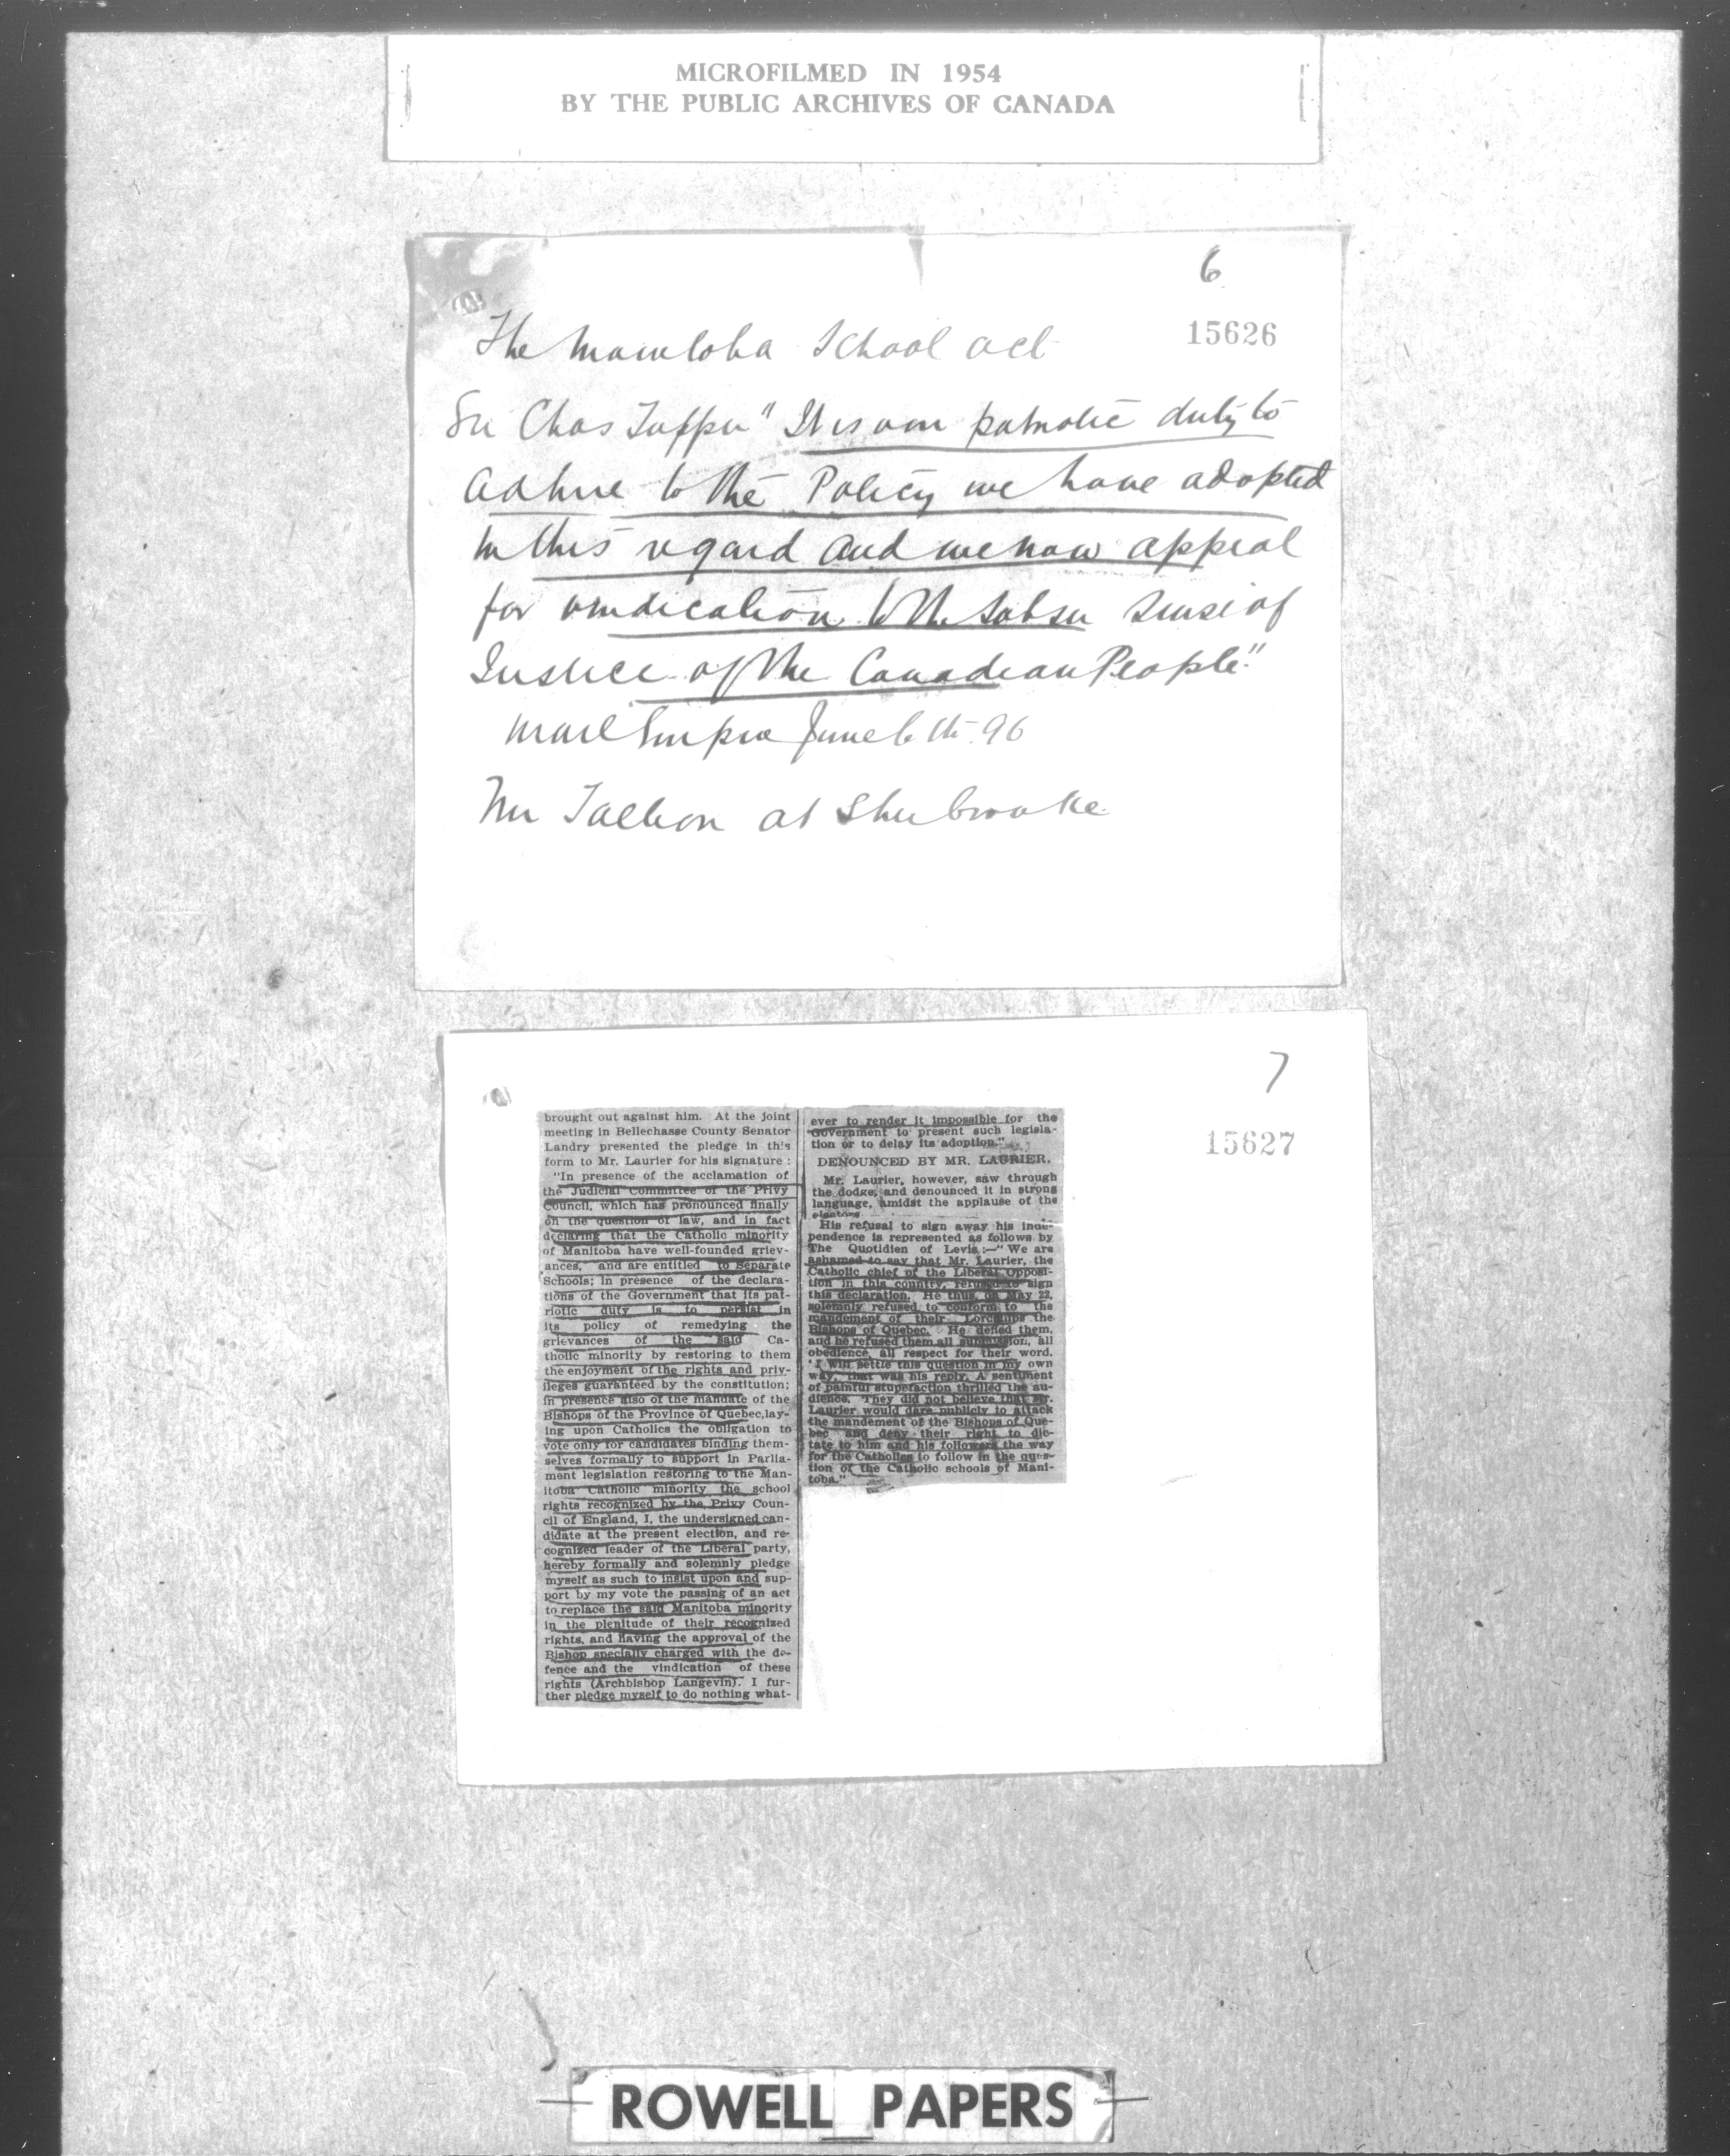 MICROFILMED IN 1954
BY THE PUBLIC ARCHIVES OF CANADA
6
15626
The Manitoba School act
Sir Chas Tupper "It is our patriotic duty to
adhere to the Policy we have adopted
in this regard and we now appeal
for vindication to the sober sense of
Justice of the Canadian People."
Mail Empire June 6th. 96
Mr Taillon at Sherbrooke
7
15627
brought out against him. At the joint
meeting in Bellechasse County Senator
Landry presented the pledge in this
form to Mr. Laurier for his signature:
"In presence of the acclamation of
the Judicial Committee of the Privy
Council, which has pronounced finally
on the question of law, and in fact
declaring that the Catholic minority
of Manitoba have well-founded griev-
ances, and are entitled to Separate
Schools; in presence of the declara-
tions of the Government that its pat-
riotic duty is to persist in
its policy of remedying the
grievances of the said Ca-
tholic minority by restoring to them
the enjoyment of the rights and priv-
ileges guaranteed by the constitution;
in presence also of the mandate of the
Bishops of the Province of Quebec, lay-
ing upon Catholics the obligation to
vote only for candidates binding them-
selves formally to support in Parlia-
ment legislation restoring to the Man-
itoba Catholic minority the school
rights recognized by the Privy Coun-
cil of England, I, the undersigned can-
didate at the present election, and re-
cognized leader of the Liberal party,
hereby formally and solemnly pledge
myself as such to insist upon and sup-
port by my vote the passing of an act
to replace the said Manitoba minority
in the plenitude of their recognized
rights, and having the approval of the
Bishop specially charged with the de-
fence and the vindication of these
rights (Archbishop Langevin). I fur-
ther pledge myself to do nothing what-
ever to render it impossible for the
Government to present such legisla-
tion or to delay its adoption."
DENOUNCED BY MR. LAURIER.
Mr. Laurier, however, saw through
the dodge, and denounced it in strong
language, amidst the applause of the
electors.
His refusal to sign away his inde-
pendence is represented as follows by
The Quotidien of Levis:—"We are
ashamed to say that Mr. Laurier, the
Catholic chief of the Liberal Opposi-
tion in this country, refused to sign
this declaration. He thus, on May 22,
solemnly refused to conform to the
mandement of their Lordships the
Bishops of Quebec. He defied them,
and he refused them all submission, all
obedience, all respect for their word.
'I will settle this question in my own
way,' that was his reply. A sentiment
of painful stupefaction thrilled the au-
dience. They did not believe that Mr.
Laurier would dare publicly to attack
the mandement of the Bishops of Que-
bec and deny their right to dic-
tate to him and his followers the way
for the Catholics to follow in the ques-
tion of the Catholic schools of Mani-
toba."
ROWELL PAPERS